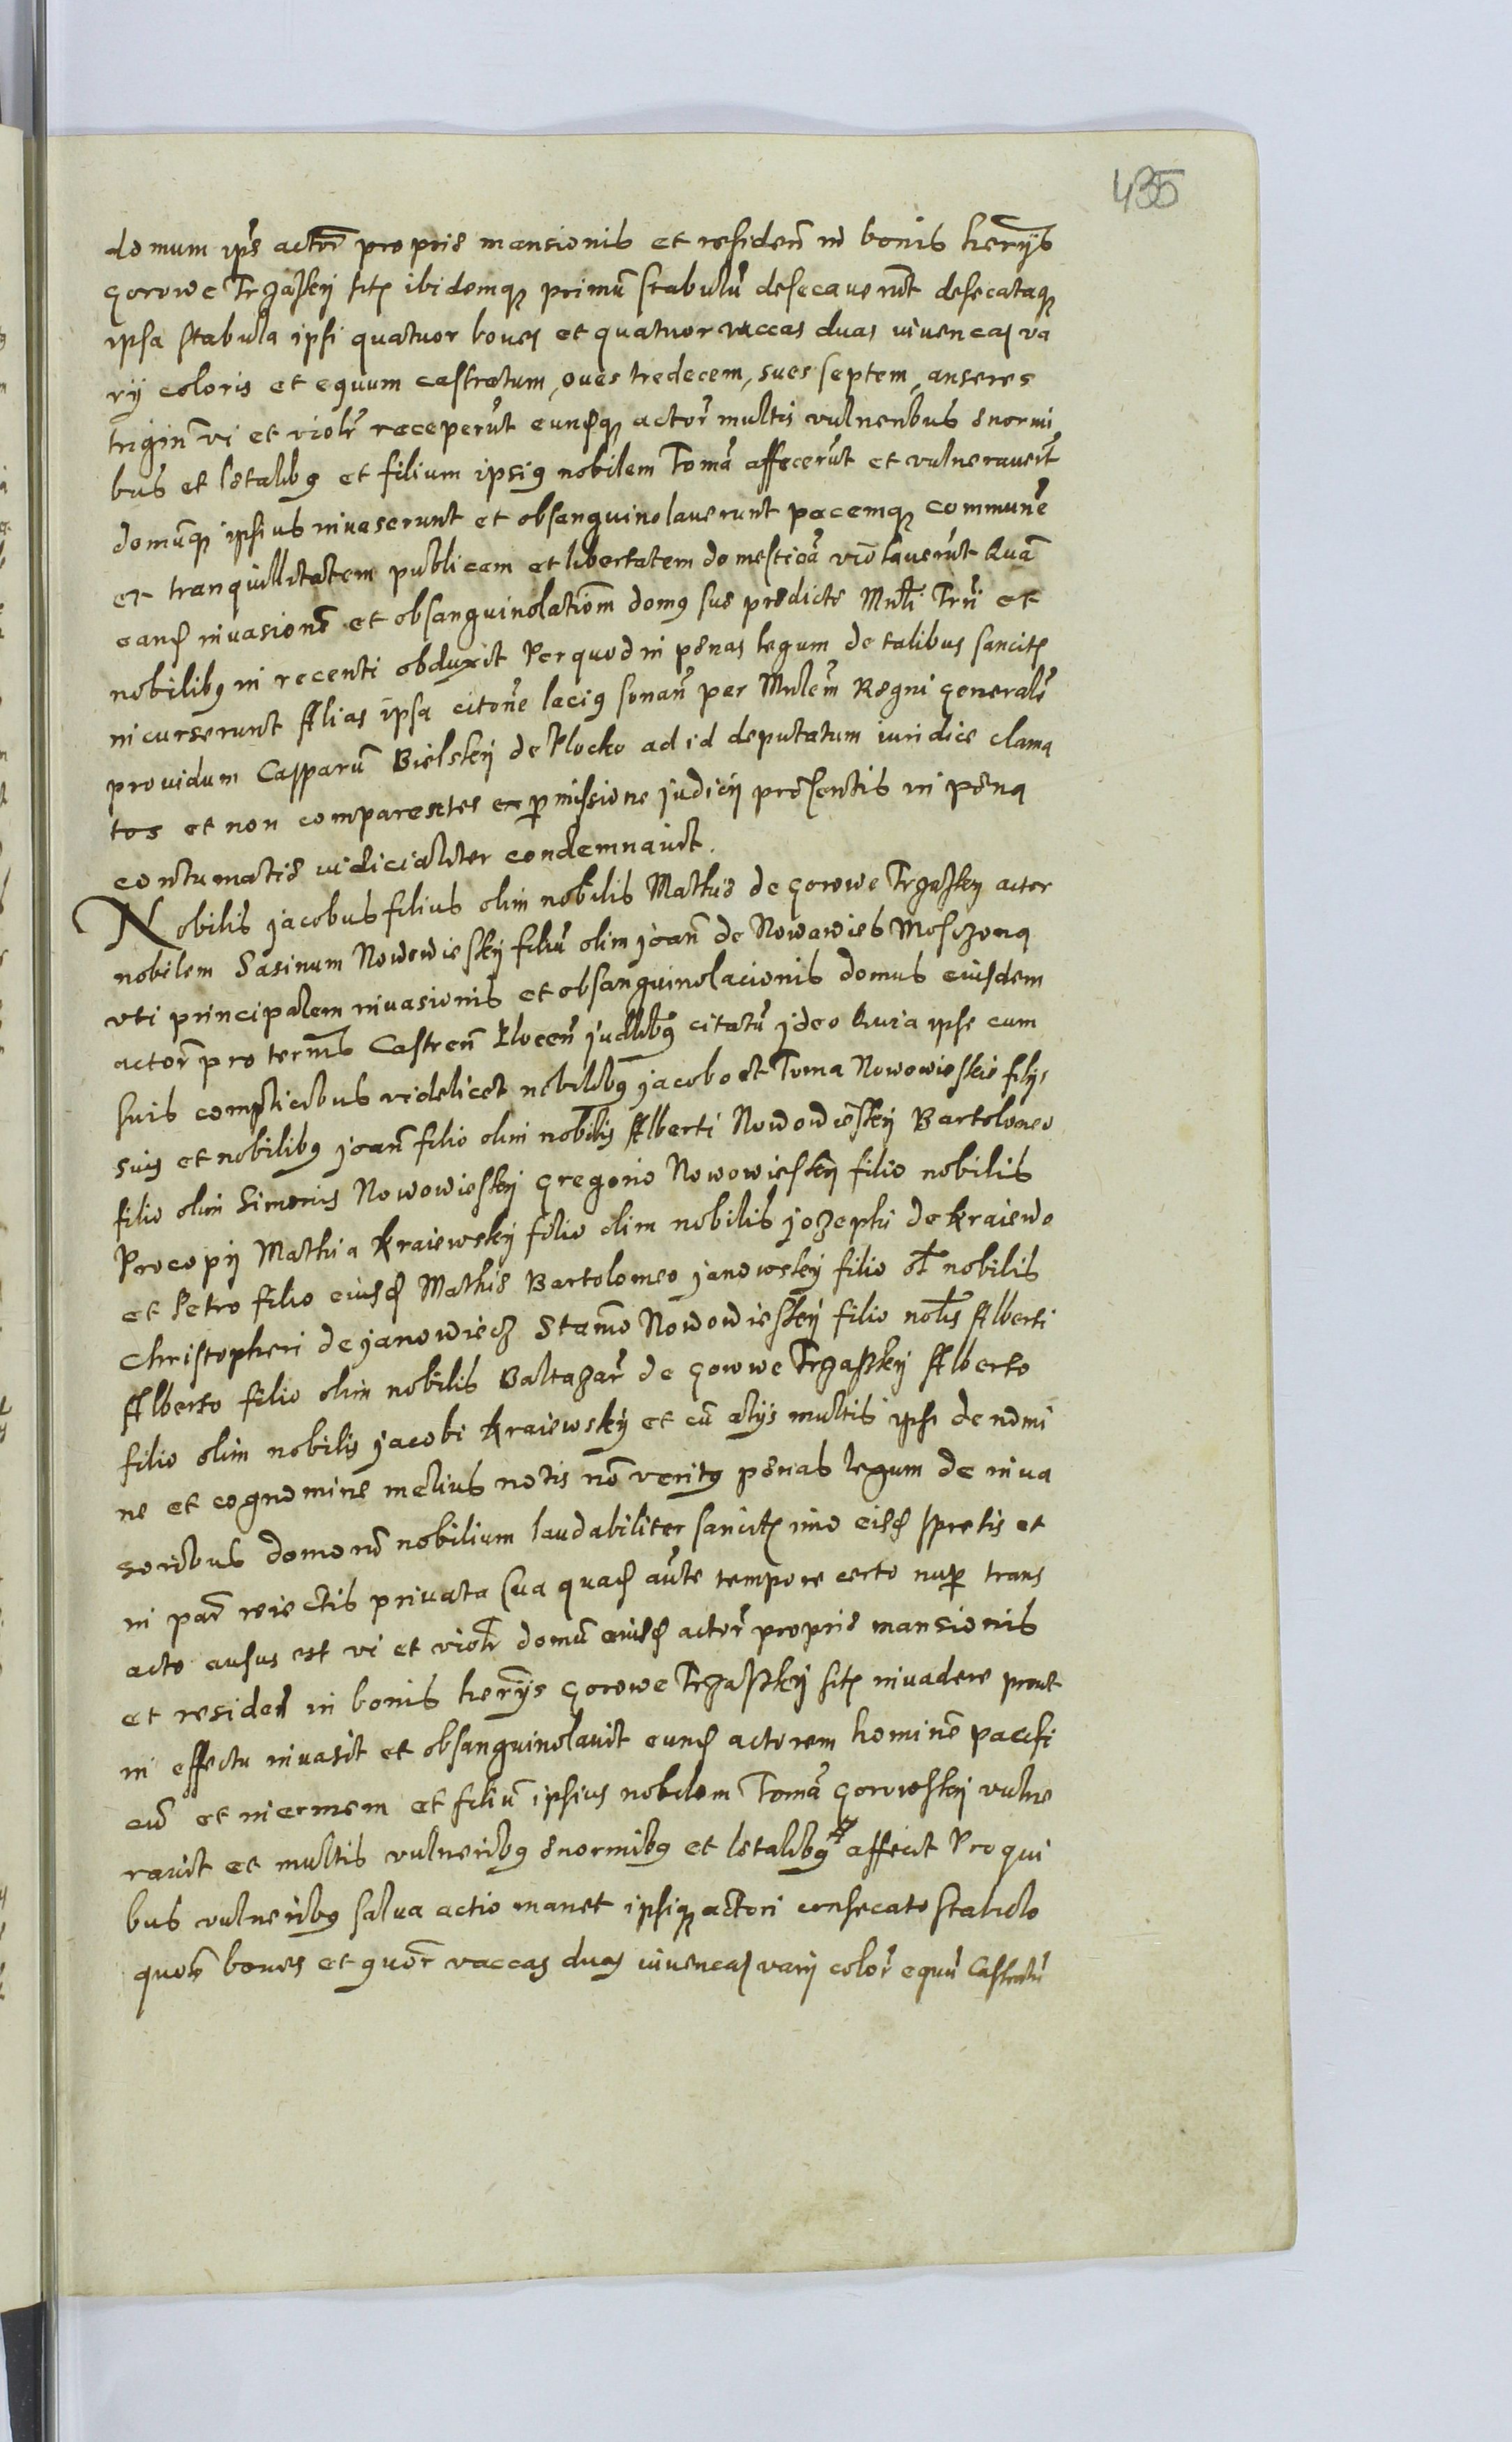 435
domum ips actor proprie mansionis et residen in bonis heriis
Gorowe Trzaski sitis ibidemque primu stabulu desecaverunt desecataque
ipsa stabula ipsi quatuor boves et quatuor vaccas duas iuvencas va
rii coloris et equum castratum, oves tredecem, sues septem, anseres
trigin vi et violr receperut eundemque actor multis vulneribus enormi
bus et letalibus et filium ipsius nobilem Toma affecerut et vulneraverut
domumque ipsius invaserunt et obsanguinolaverunt pacemque commune
et tranquillitatem publicam et libertatem domestica violaverut Qua
eand invasione et obsanguinolatiom domus sue predicte Mnlti Trri et
nobilibus in recenti obduxit Per quod in penas legum de talibus sancitis
incurserunt Alias ipsa citone lacius sonan per Mnlem Regni Generale
providum Casparu Bielskij de Plocko ad id deputatum iuridice clama
tos et non comparentes ex permissione judicij presentis in pena
contumatie iudicialiter condemnavit.
Nobilis Jacobus filius olim nobilis Mathie de Gorowe Trzaskij actor
nobilem Sasinum Nowowieskij filiu olim Joan de Nowawies Mosczona
uti principalem invasionis et obsanguinolacionis domus eiusdem
actor pro termis Castren Plocen judlibus citatu Ideo Quia ipse cum
suis complicibus videlicet nobilibus Jacobo et Toma Nowowieskie filijs
suis et nobilibus Joan filio olim nobilis Alberti Nowowieskij Bartolomeo
filio olim Simonis Nowowieskij Gregorio Nowowieskij filio nobilis
Procopij Mathia Kraiewskij filio olim nobilis Jozephi de Kraiewo
et Petro filio eiusd Mathie Bartolomeo Janowskij filio ol nobilis
Christopheri de Janowiecz Stanio Nowowieskij filio nolis Alberti
Alberto filio olim nobilis Baltazar de Gowwe Trzaskij Alberto
filio olim nobilis Jacobi Kraiewskij et cu alijs multis ipsi de nomi
ne et cognomine melius notis no veritus penas legum de inva
soribus domoru nobilium laudabiliter sancitis imo eisd spretis et
in par reiectis privata sua quad aute tempore certo nup trans
acto ausus est vi et violr domu eiusd actor proprie mansionis
et residen in bonis herijs Gorowe Trzaskij sitis invadere prout
in effectu invasit et obsanguinolavit eund actorem homine pacifi
cu et inermem et filiu ipsius nobilem Toma Gorowskij vulne
ravit et multis vulneribus enormibus et letalibus affecit Pro qui
bus vulneribus salva actio manet ipsique actori consecato stabulo
quor boves et quor vaccas duas iuvencas varij color equu Castratu